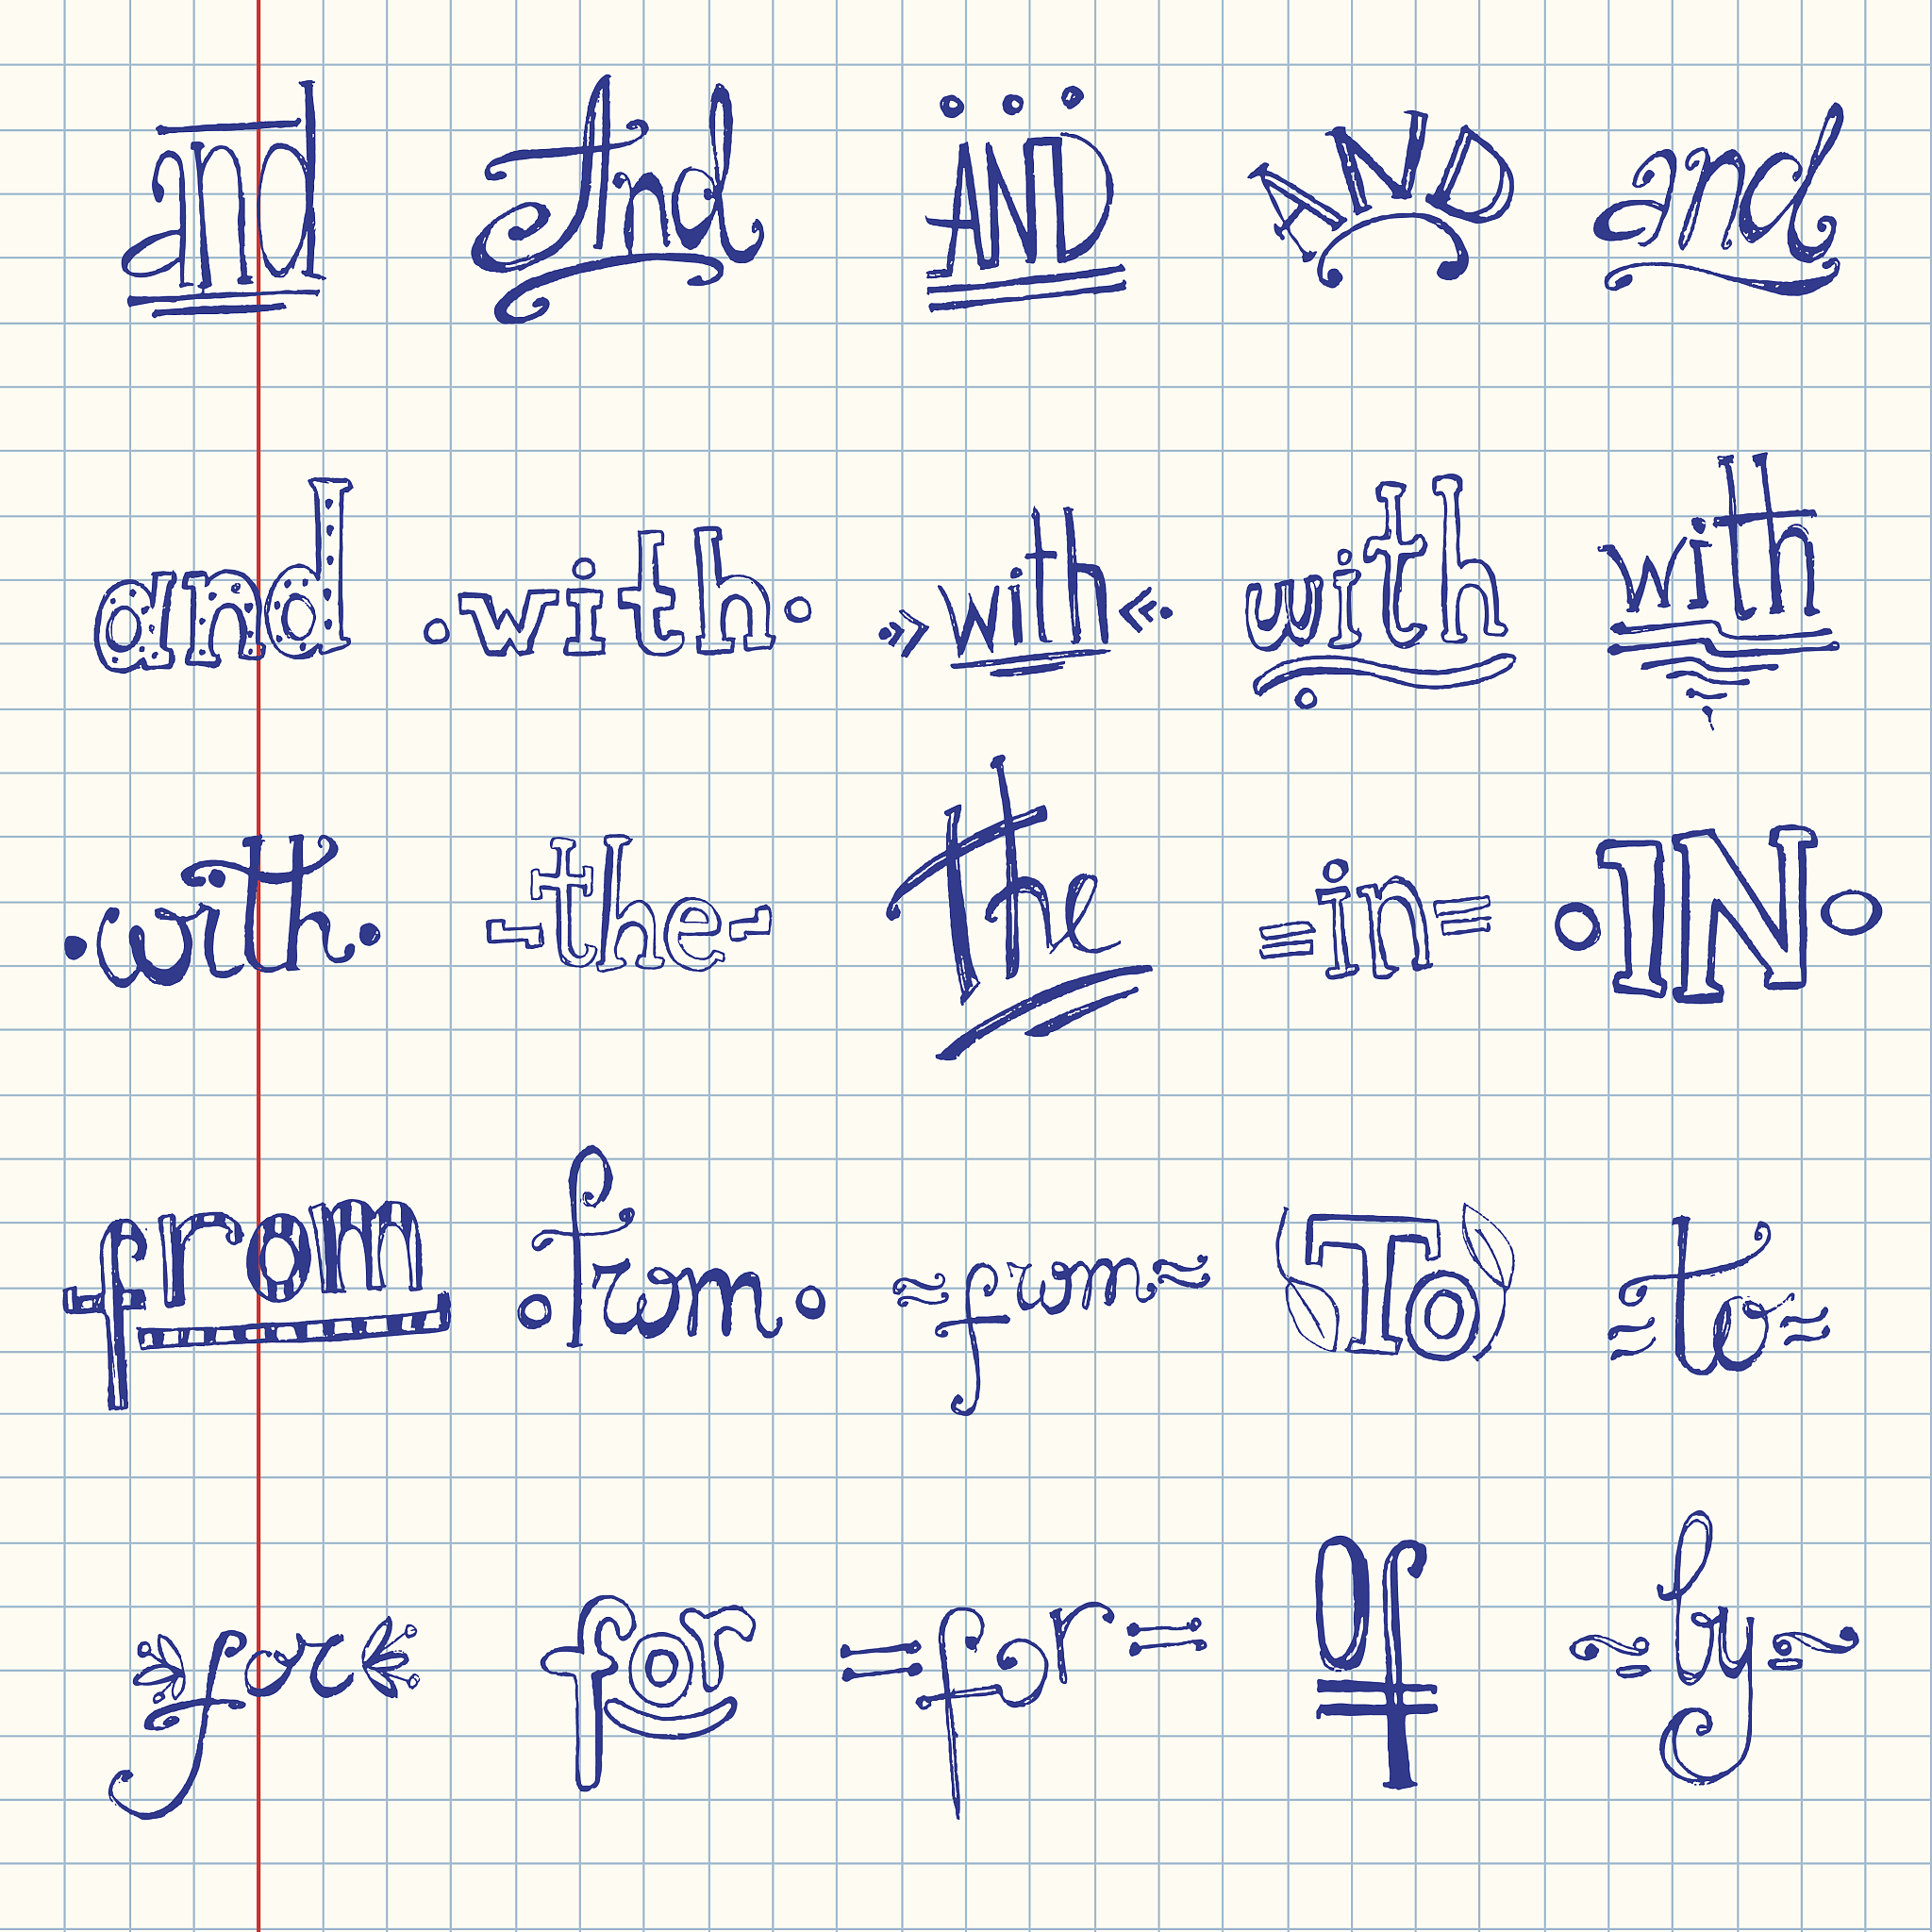 and And AND AND and
and with with with with
with the the in IN
from from from To to
for for for Of by